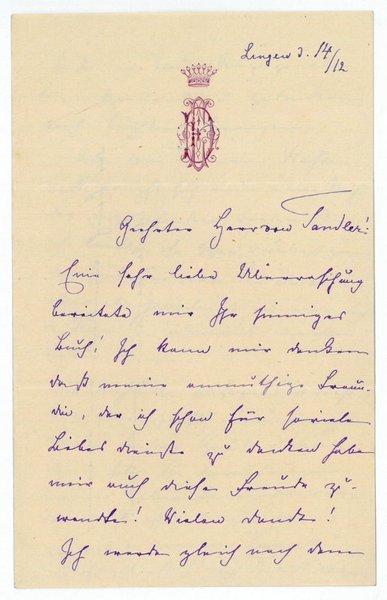 Lengen d. 14/12
Geehrter Herr von Sandler!
Eine sehr liebe Überraschung
bereitete mir Ihr sinniges
Buch! Ich kann mir denken
daß meine anmuthige Freun-
din, der ich schon für so viele
Liebesdienste zu danken habe
mir auch diese Freude zu-
wandte! Vielen Dank!
Ich werde gleich nach dem